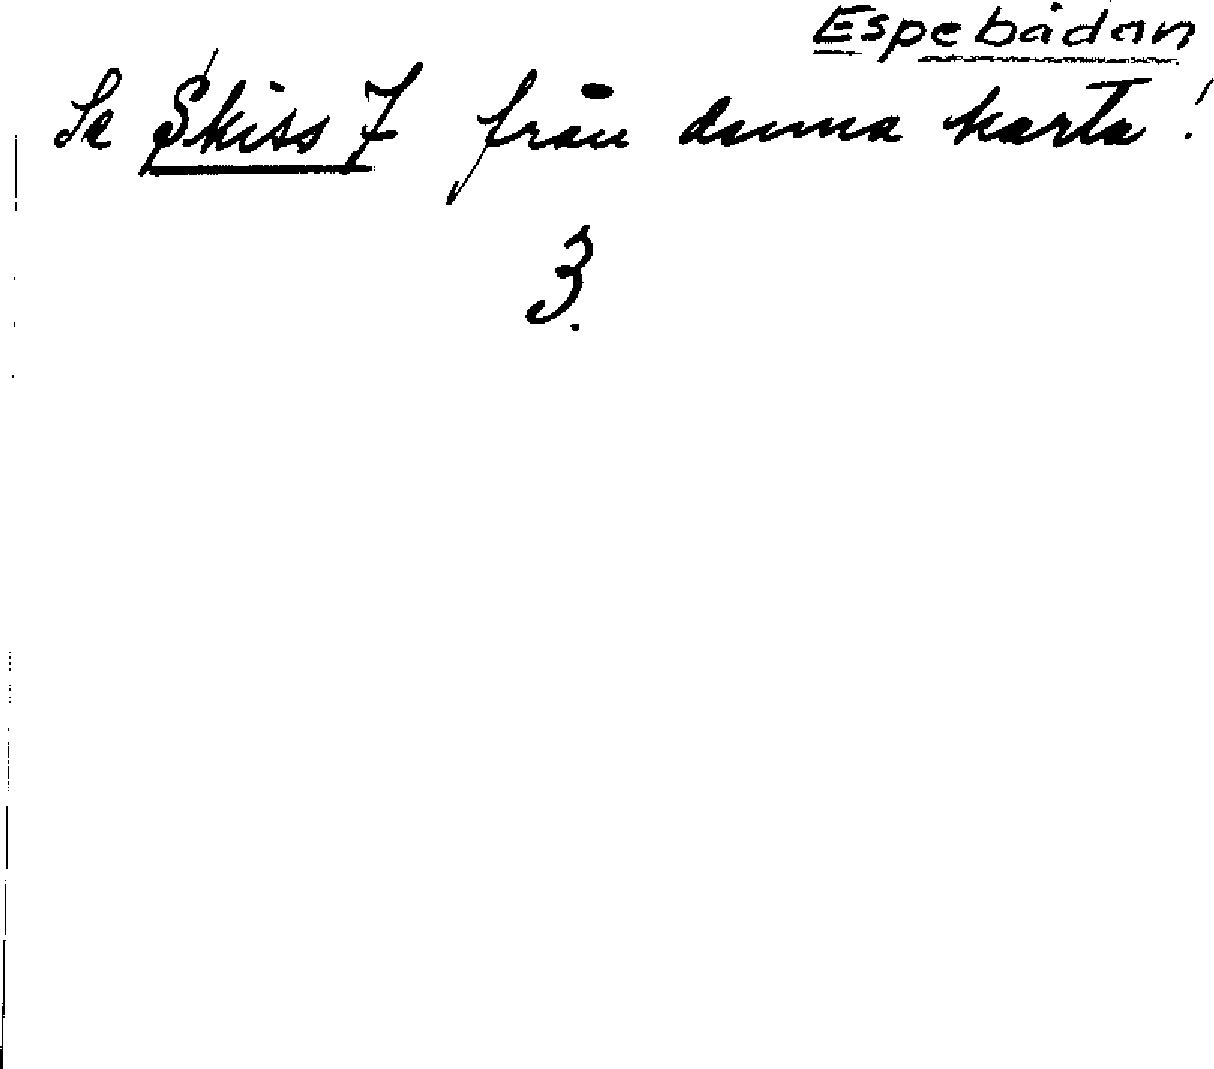 Espebådan
Se Skiss 7 från denna karta!
3.